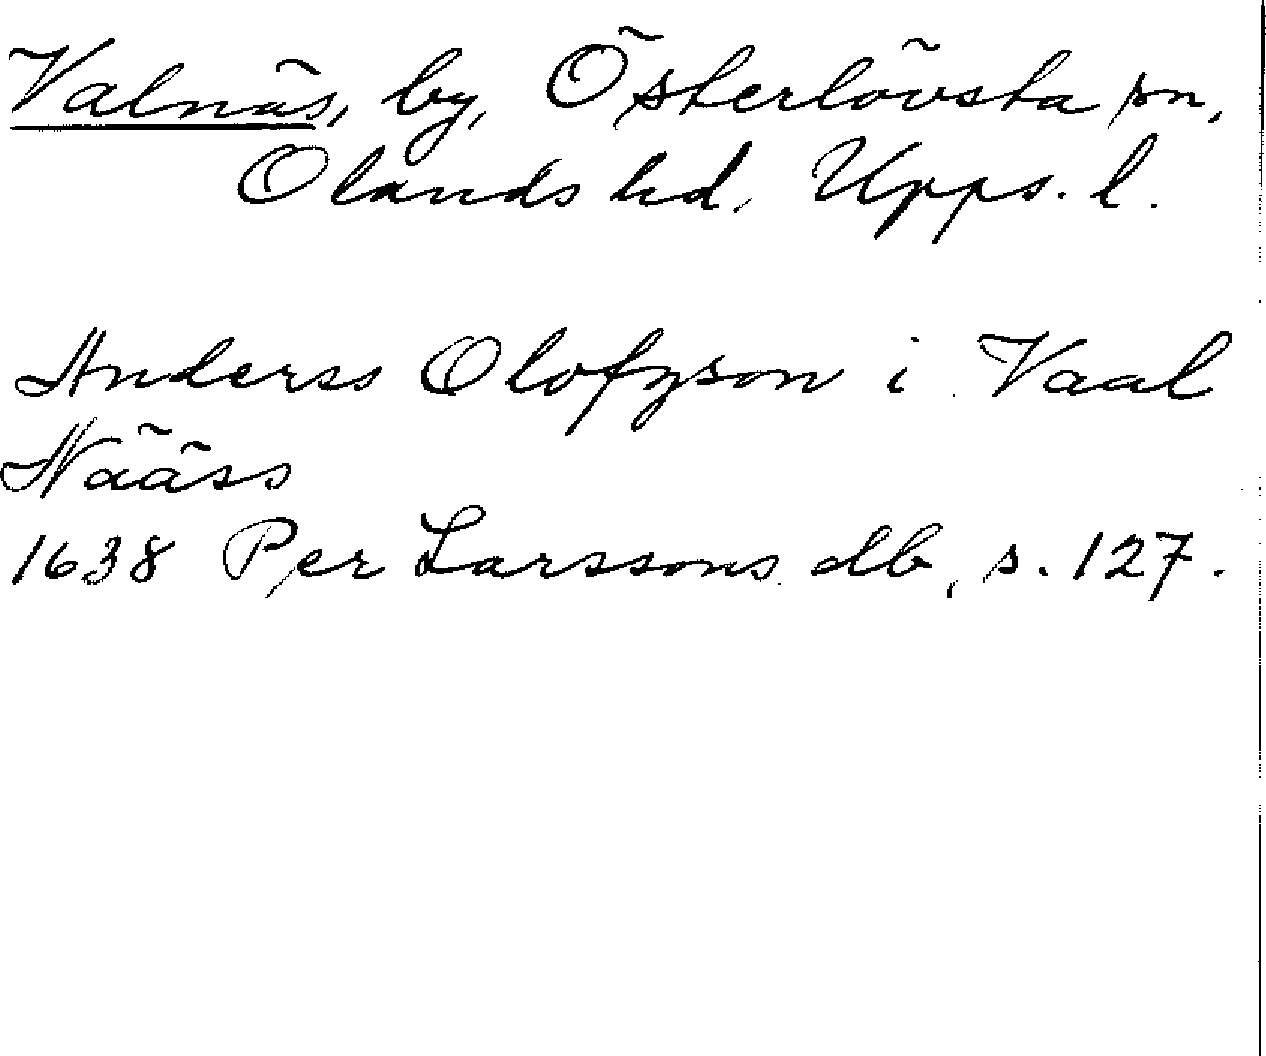 Valnäs, by, Österlövsta sn,
Olands hd, Upps. l.
Anderss Olofzson i Vaal
Nääss
1638 Per Larssons db, s. 127.